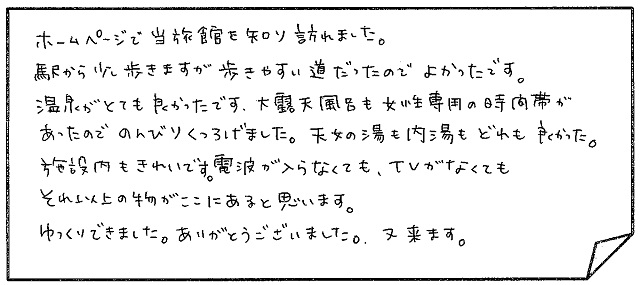 ホームページで当旅館を知り訪れました。
駅から少し歩きますが歩きやすい道だったのでよかったです。
温泉がとても良かったです、大露天風呂も女性専用の時間帯が
あったのでのんびりくつろげました。天女の湯も内湯もどれも良かった。
施設内もきれいです。電波が入らなくても、TVがなくても
それ以上の物がここにあると思います。
ゆっくりできました。ありがとうございました。又来ます。